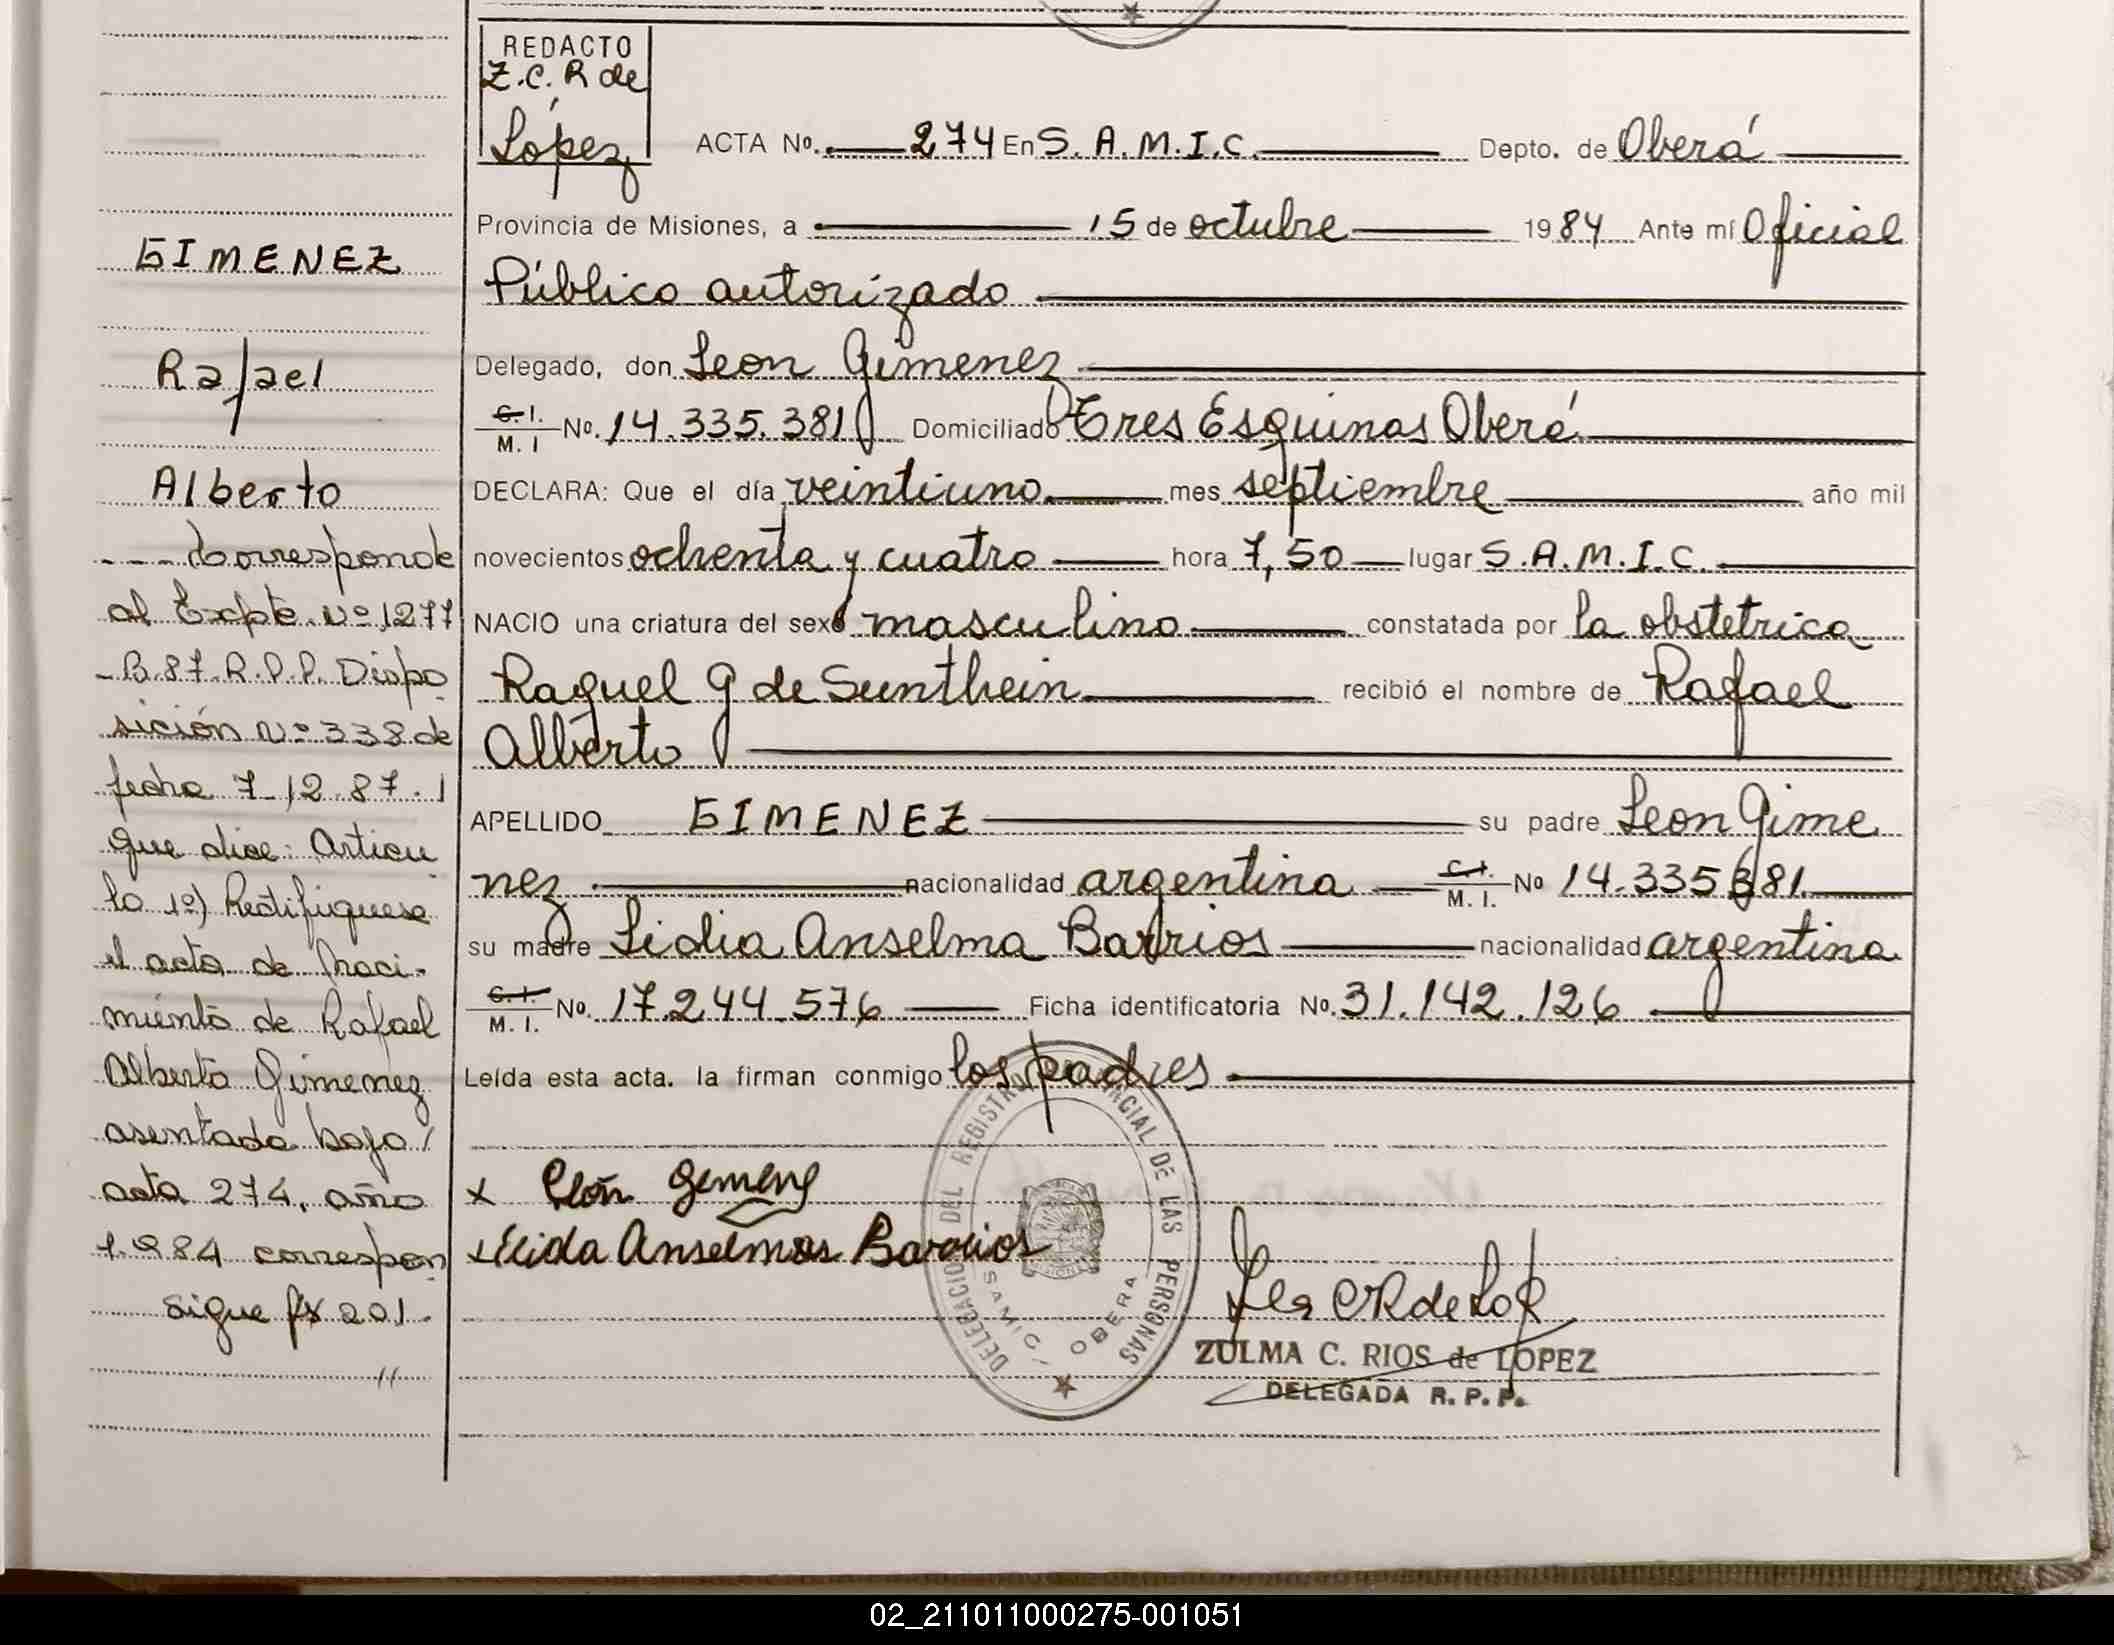 REDACTO
Z.C. R de
López
ACTA No. 274 En S. A. M. I. C. Depto. de Oberá
Provincia de Misiones, a 15 de octubre 1984 Ante mí Oficial
Público autorizado
Delegado, don Leon Gimenez
C. I. M. I No. 14.335.381 Domiciliado Tres Esquinas Oberá
DECLARA: Que el día veintiuno mes septiembre año mil
novecientos ochenta y cuatro hora 7,50 lugar S.A.M.I.C.
NACIO una criatura del sexo masculino constatada por la obstetrica
Raquel G de Sunthein recibió el nombre de Rafael
Alberto
APELLIDO GIMENEZ su padre Leon Gime
nez nacionalidad argentina C.I. M. I. No 14.335.381
su madre Lidia Anselma Barrios nacionalidad argentina
C.I. M. I. No. 17.244.576 Ficha identificatoria No. 31.142.126
Leída esta acta. la firman conmigo los padres
x León Gimenez
x Elida Anselmas Barrios
DELEGACION DEL REGISTRO PROVINCIAL DE LAS PERSONAS
SAMIC - OBERA
ZULMA C. RIOS de LOPEZ
DELEGADA R. P. P.
GIMENEZ
Rafael
Alberto
--- Corresponde
al Expte. Nº 1277
-B-87-R.P.P. Dispo
sición Nº 338 de
fecha 7-12-87. 1
que dice: Articu
lo 1º) Rectifiquese
el acta de Naci-
miento de Rafael
Alberto Gimenez
asentado bajo/
acta 274, año
1.984 correspon
sigue fs 201.
//
02_211011000275-001051